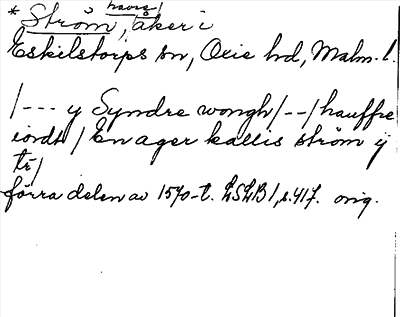 havre/
* Ström, åker i
Eskilstorps sn, Oxie hd, Malm. l.
/--- y Syndre wongh/--/hauffre
iordt/ En ager kallis ström ÿ
tr/
förra delen av 1570-t. LSLB1, s. 417. orig.